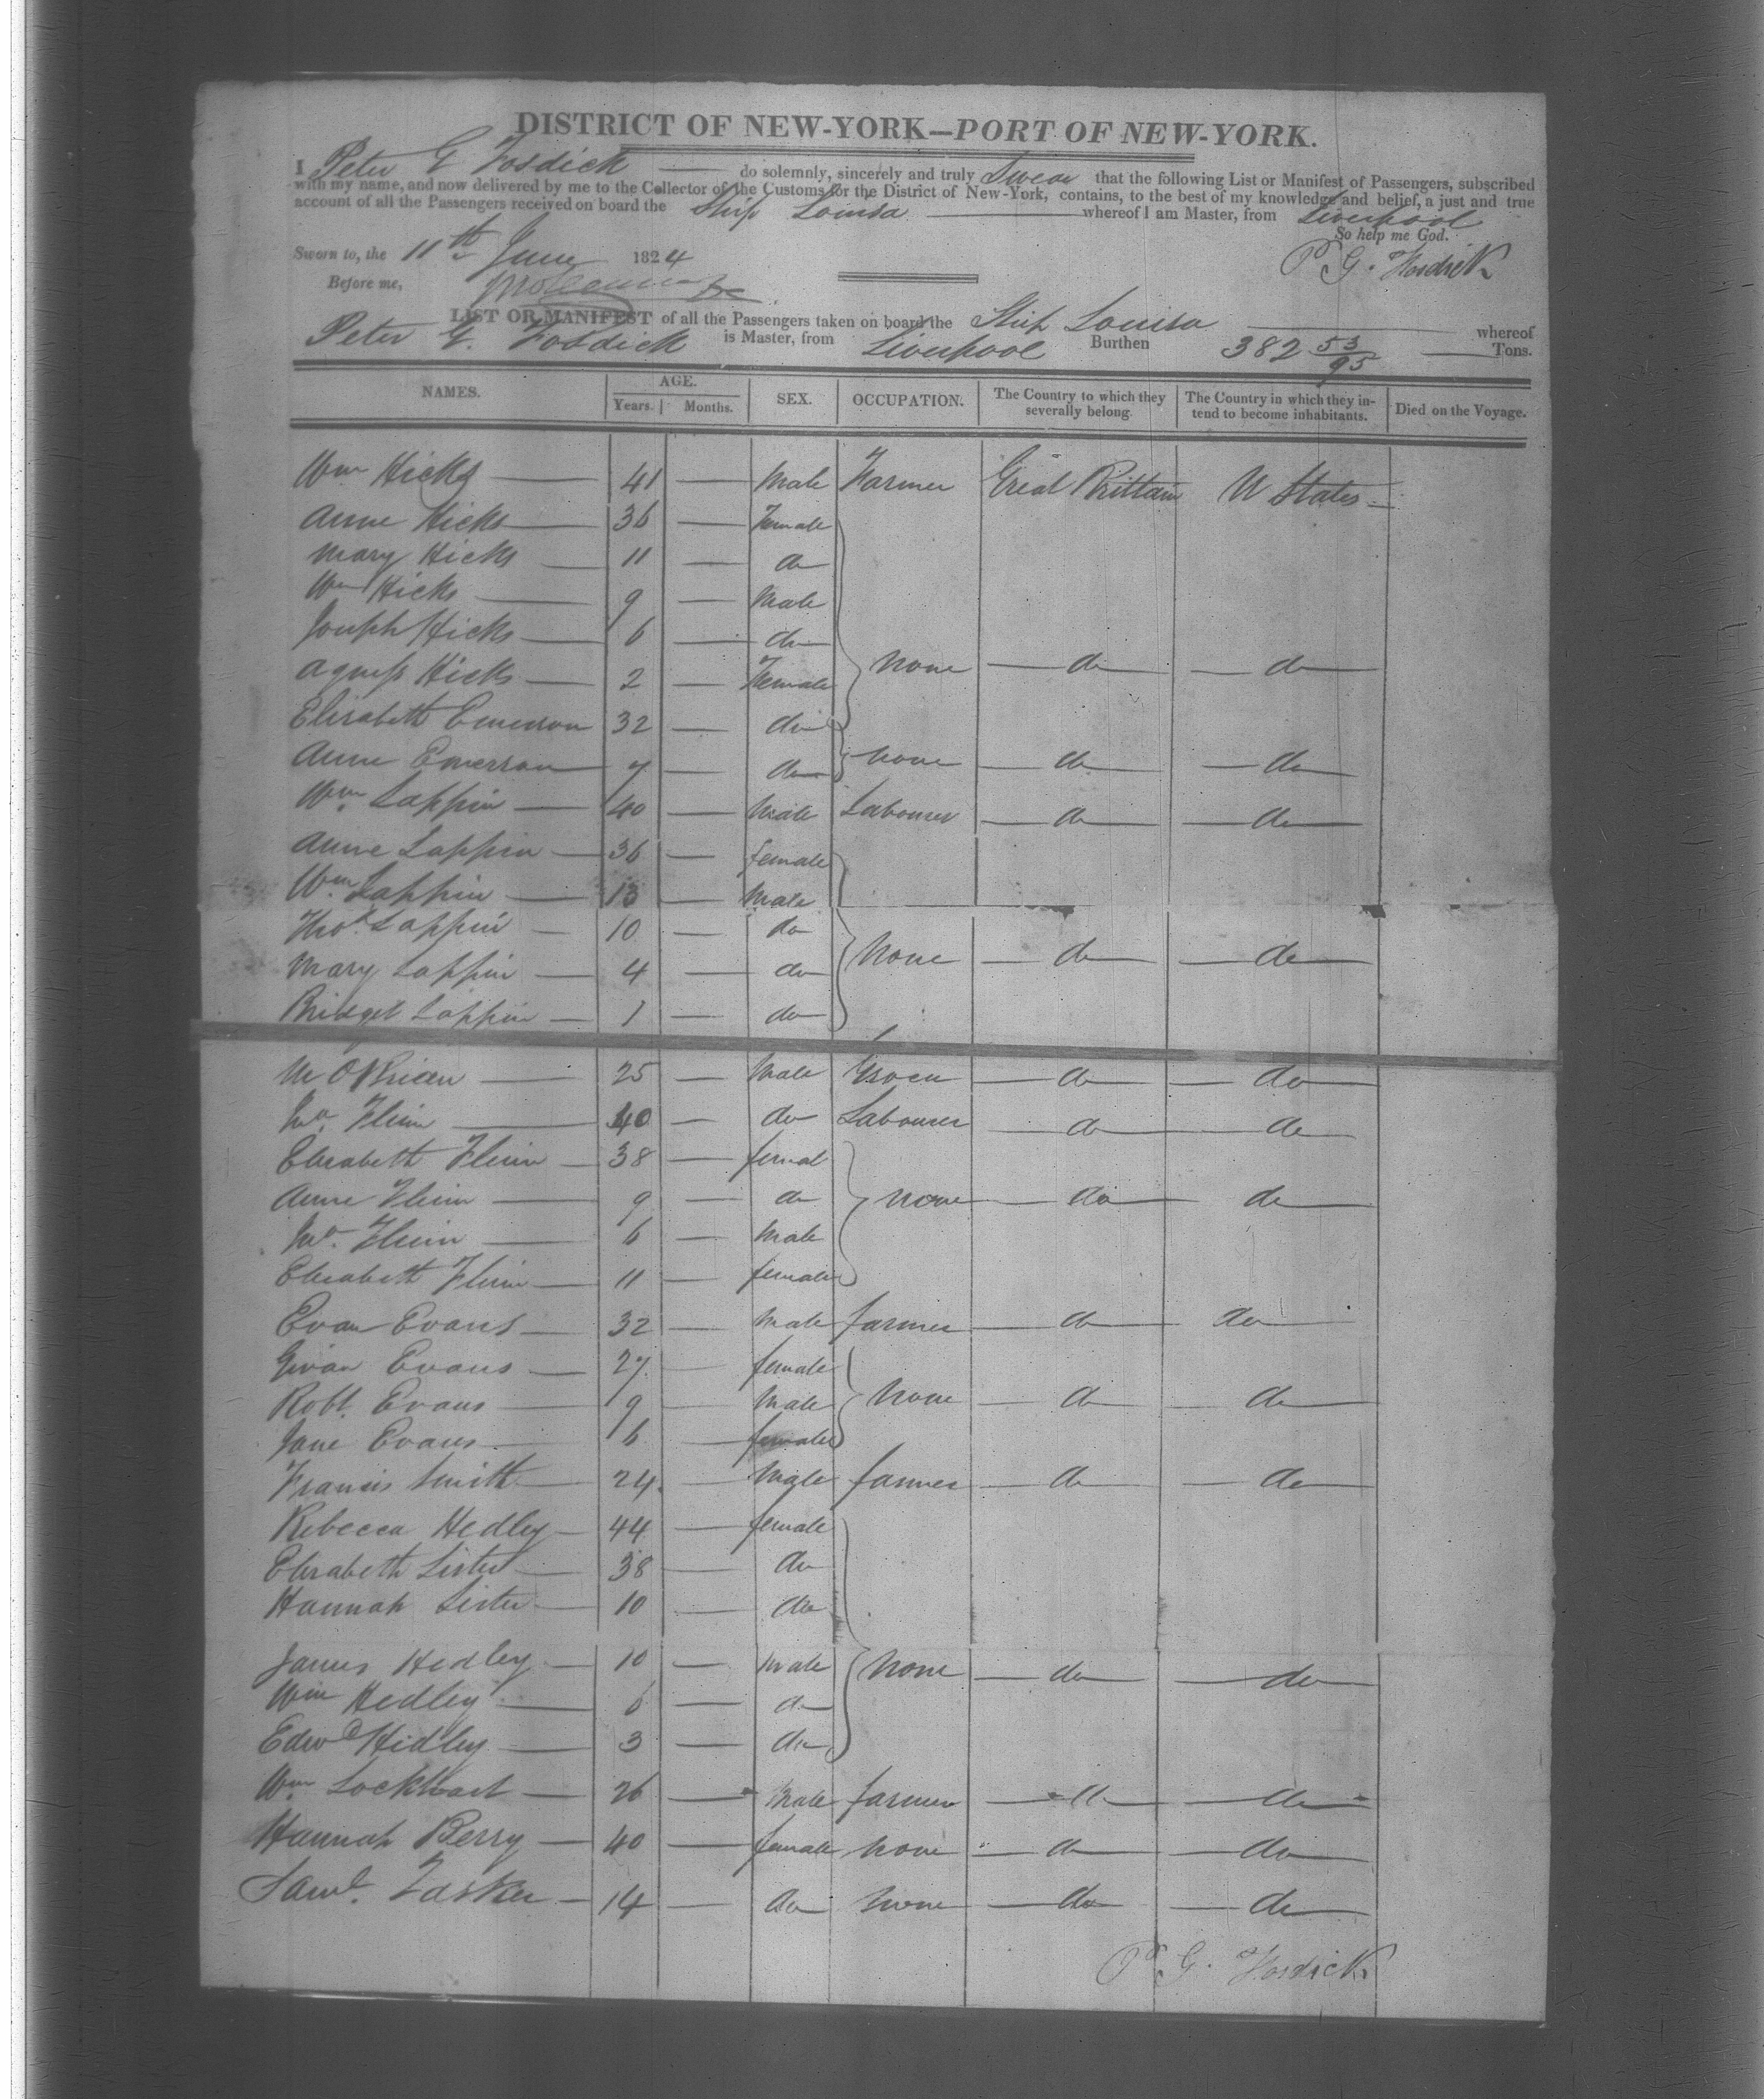 DISTRICT OF NEW-YORK—PORT OF NEW-YORK.
I Peter G Fosdick do solemnly, sincerely and truly Swear that the following List or Manifest of Passengers, subscribed
with my name, and now delivered by me to the Collector of the Customs for the District of New-York, contains, to the best of my knowledge and belief, a just and true
account of all the Passengers received on board the Ship Louisa whereof I am Master, from Liverpool
So help me God.
Sworn to, the 11th June 1824 P G. Fosdick
Before me,
LIST OR MANIFEST of all the Passengers taken on board the Ship Louisa whereof
Peter G. Fosdick is Master, from Liverpool Burthen 382 53/95 Tons.
NAMES. AGE. Years. Months. SEX. OCCUPATION. The Country to which they severally belong. The Country in which they intend to become inhabitants. Died on the Voyage.
Wm Hicks — 41 — Male Farmer Great Brittain U States
Anne Hicks — 36 — Female
Mary Hicks — 11 — do
Wm Hicks — 9 — Male
Joseph Hicks — 6 — do
Agness Hicks — 2 — Female none — do — — do —
Elisabeth Emerson 32 — do
Anne Emerson 7 — do none — do — — do —
Wm Lappin — 40 — Male Labourer — do — — do —
Anne Lappin — 36 — female
Wm Lappin — 13 — Male
Thos. Lappin — 10 — do
Mary Lappin — 4 — do None — do — — do —
Bridget Lappin — 1 — do
M OBrien — 25 — Male Grocer — do — — do —
Jno. Flinn — 40 — do Labourer — do — — do —
Elisabeth Flinn — 38 — femal
Anne Flinn — 9 — do none — do — do
Jno. Flinn — 6 — Male
Elisabeth Flinn — 11 — female
Evan Evans — 32 — Male farmer — do — do —
Evans — 27 — female
Robt. Evans — 9 — Male None — do — — do —
Jane Evans — 6 — female
Francis Smith — 24 — Male farmer — do — — do —
Rebecca Hedley — 44 — female
Elisabeth Lister — 38 — do
Hannah Lister — 10 — do
James Hedley — 10 — Male None — do — — do —
Wm Hedley — 6 — do
Edwd Hidley — 3 — do
Wm Lockhart — 26 — Male farmer — do — — do —
Hannah Berry — 40 — female none — do — — do —
Saml. Tasker — 14 — do none — do — — do —
P. G. Fosdick